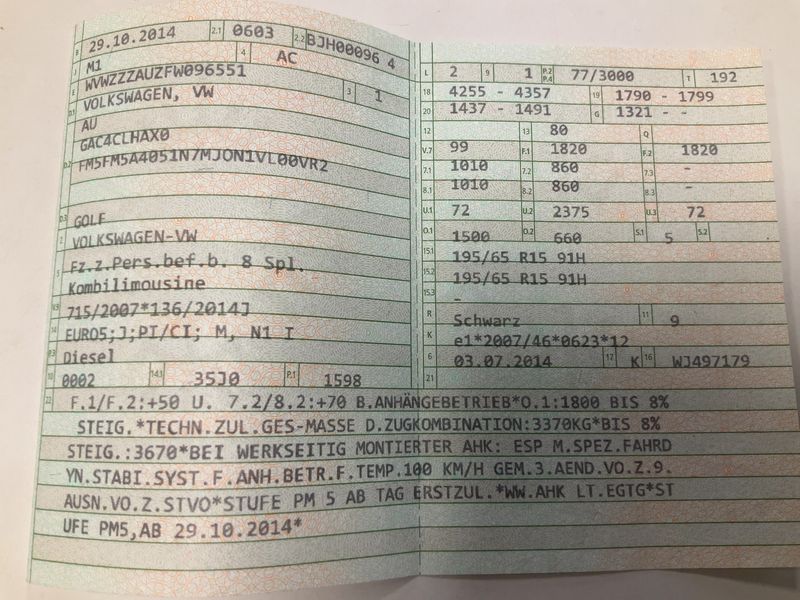 B 29.10.2014 2.1 0603 2.2 BJH00096 4
J M1 4 AC
E WVWZZZAUZFW096551
D.1 VOLKSWAGEN, VW 3 1
AU
D.2 GAC4CLHAX0
FM5FM5A4051N7MJON1VL00VR2
D.3 GOLF
2 VOLKSWAGEN-VW
5 Fz.z.Pers.bef.b. 8 Spl.
Kombilimousine
V.9 715/2007*136/2014J
14 EURO5;J;PI/CI; M, N1 I
P.3 Diesel
10 0002 14.1 35J0 P.1 1598
L 2 9 1 P.2 P.4 77/3000 T 192
18 4255 - 4357 19 1790 - 1799
20 1437 - 1491 G 1321 - -
12 13 80 Q
V.7 99 F.1 1820 F.2 1820
7.1 1010 7.2 860 7.3 -
8.1 1010 8.2 860 8.3 -
U.1 72 U.2 2375 U.3 72
O.1 1500 O.2 660 S.1 5 S.2
15.1 195/65 R15 91H
15.2 195/65 R15 91H
15.3 -
R Schwarz 11 9
K e1*2007/46*0623*12
6 03.07.2014 17 K 16 WJ497179
21
22 F.1/F.2:+50 U. 7.2/8.2:+70 B.ANHÄNGEBETRIEB*O.1:1800 BIS 8%
STEIG.*TECHN.ZUL.GES-MASSE D.ZUGKOMBINATION:3370KG*BIS 8%
STEIG.:3670*BEI WERKSEITIG MONTIERTER AHK: ESP M.SPEZ.FAHRD
YN.STABI.SYST.F.ANH.BETR.F.TEMP.100 KM/H GEM.3.AEND.VO.Z.9.
AUSN.VO.Z.STVO*STUFE PM 5 AB TAG ERSTZUL.*WW.AHK LT.EGTG*ST
UFE PM5,AB 29.10.2014*